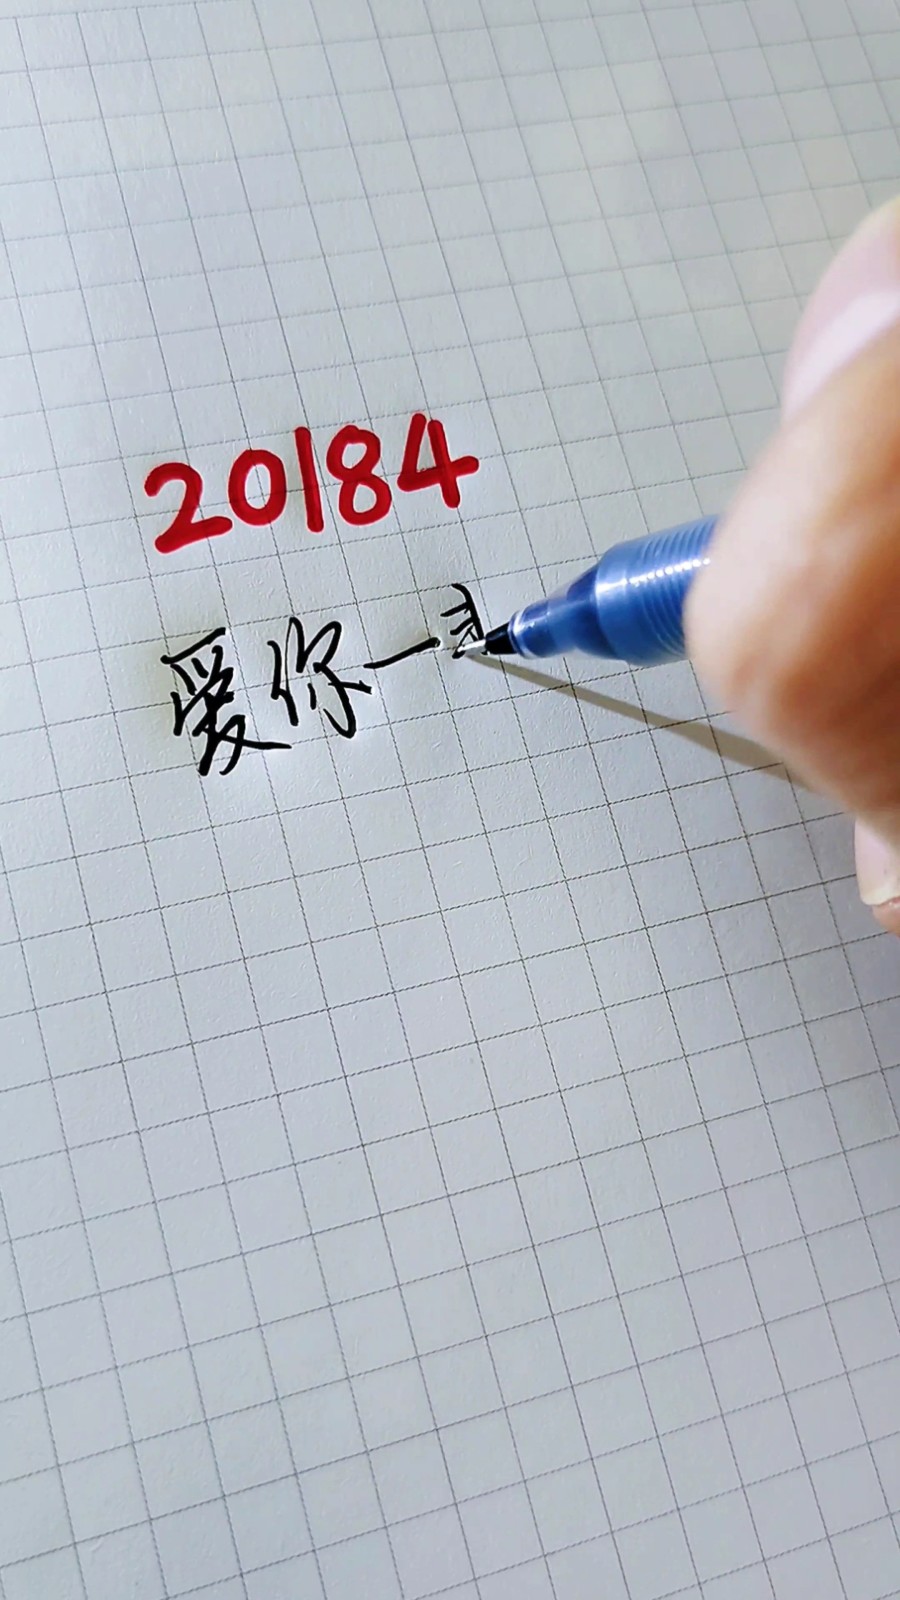 20184
爱你一